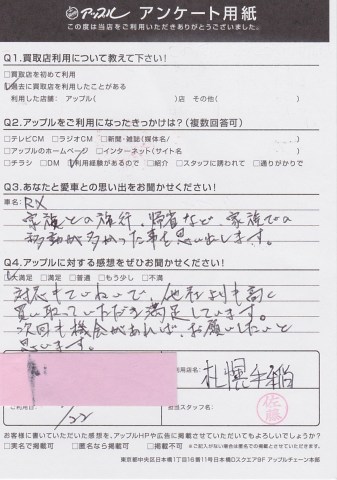 アップル アンケート用紙
この度は当店をご利用いただきありがとうございました。
Q1.買取店利用について教えて下さい!
□買取店を初めて利用
☑過去に買取店を利用したことがある
利用した店舗: アップル( )店 その他( )
Q2.アップルをご利用になったきっかけは?(複数回答可)
□テレビCM □ラジオCM □新聞・雑誌(媒体名/ )
□アップルのホームページ □インターネット(サイト名 )
□チラシ □DM ☑利用経験があるので □紹介 □スタッフに誘われて □通りがかりで
Q3.あなたと愛車との思い出をお聞かせください!
車名: RX
家族との旅行、帰省など、家族での
移動が多かった事を思い出します。
Q4.アップルに対する感想をぜひお聞かせください!
☑大満足 □満足 □普通 □もう少し □不満
対応もていねいで、他社よりも高く
買い取っていただき満足しています。
次回も機会があれば、お願いしたいと
思います。
利用店名: 札幌手稲
ご利用日 1/22
担当スタッフ名: 佐藤
お客様に書いていただいた感想を、アップルHPや広告に掲載させていただいてもよろしいでしょうか?
□実名で掲載可 □匿名なら掲載可 □掲載不可 ※ご記入がない場合は匿名での掲載とさせていただきます。
東京都中央区日本橋1丁目16番11号日本橋Dスクエア9F アップルチェーン本部